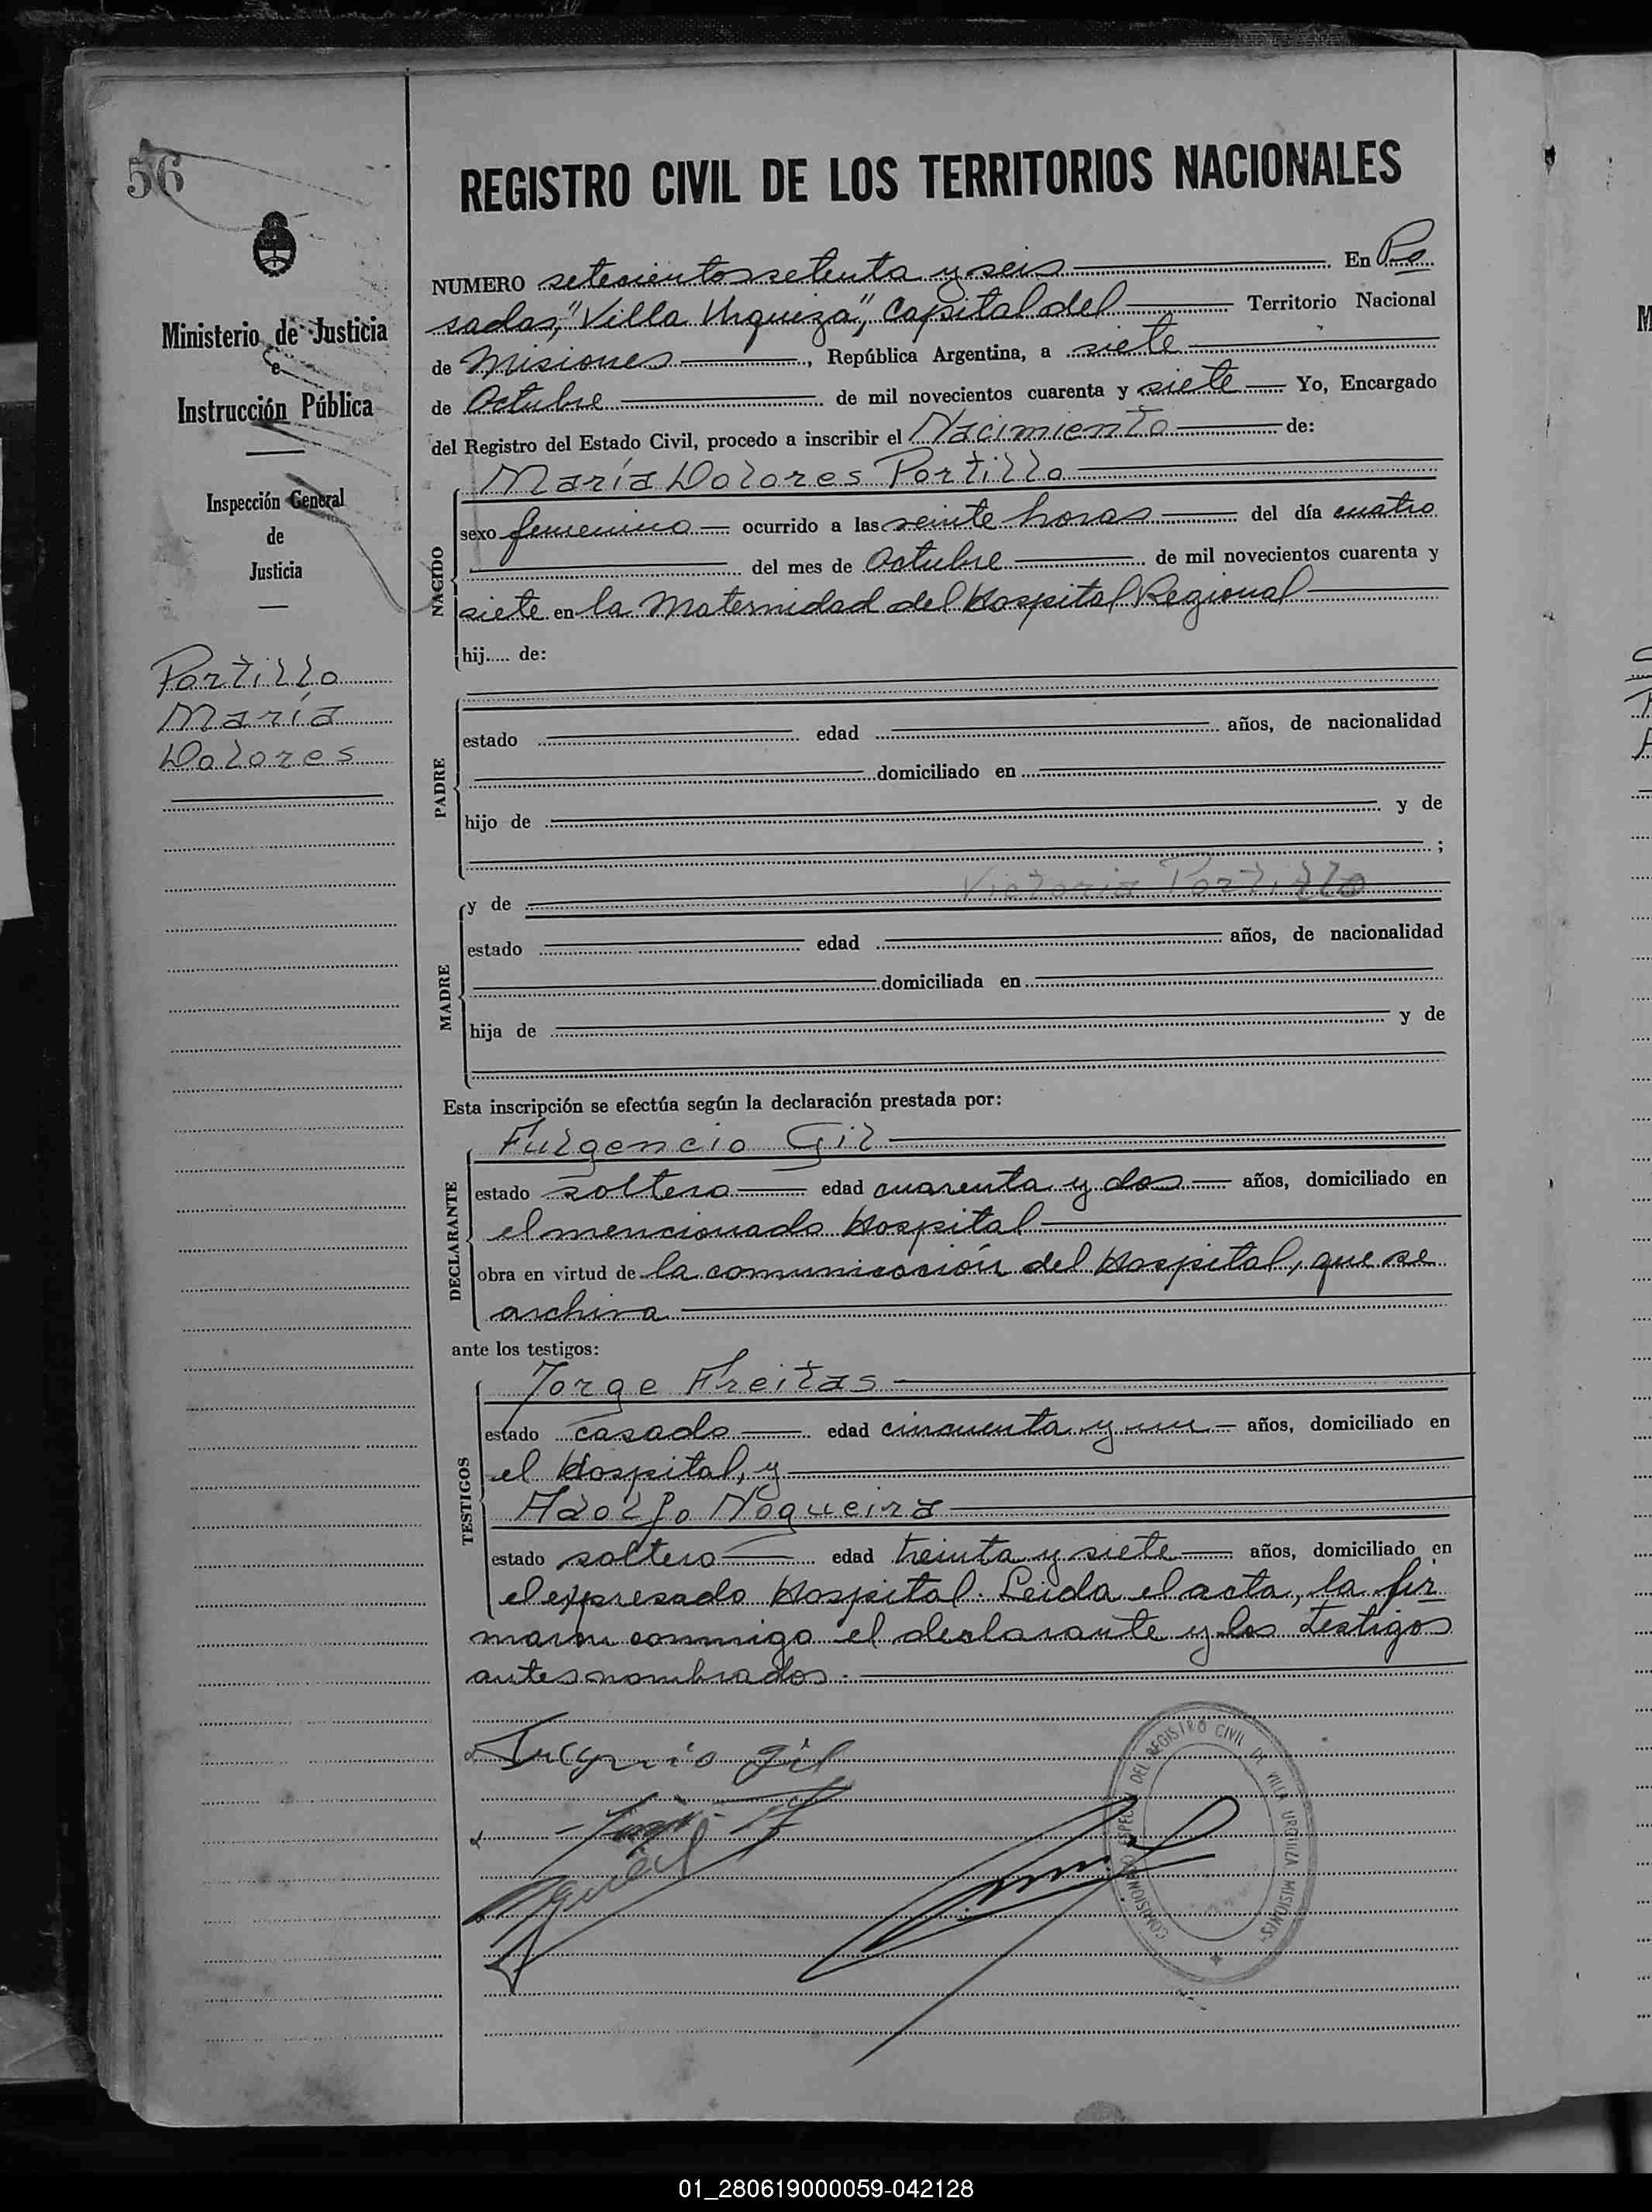 56
REGISTRO CIVIL DE LOS TERRITORIOS NACIONALES
Ministerio de Justicia
e
Instrucción Pública
Inspección General
de
Justicia
Portillo
María
Dolores
NUMERO setecientos setenta y seis En Po
sadas, "Villa Urquiza", Capital del Territorio Nacional
de Misiones, República Argentina, a siete
de Octubre de mil novecientos cuarenta y siete Yo, Encargado
del Registro del Estado Civil, procedo a inscribir el Nacimiento de:
NACIDO
María Dolores Portillo
sexo femenino ocurrido a las veinte horas del día cuatro
del mes de Octubre de mil novecientos cuarenta y
siete en la Maternidad del Hospital Regional
hij..... de:
PADRE
estado edad años, de nacionalidad
domiciliado en
hijo de y de
;
Victoria Portillo
MADRE
y de
estado edad años, de nacionalidad
domiciliada en
hija de y de
Esta inscripción se efectúa según la declaración prestada por:
DECLARANTE
Fulgencio Gil
estado soltero edad cuarenta y dos años, domiciliado en
el mencionado Hospital
obra en virtud de la comunicación del Hospital, que se
archiva
ante los testigos:
TESTIGOS
Jorge Freitas
estado casado edad cincuenta y un años, domiciliado en
el Hospital, y
Adolfo Nogueira
estado soltero edad treinta y siete años, domiciliado en
el expresado Hospital. Leida el acta, la fir
maron conmigo el declarante y los testigos
antes nombrados.
Gil
DEL REGISTRO CIVIL DE VILLA URQUIZA MISIONES
01_280619000059-042128